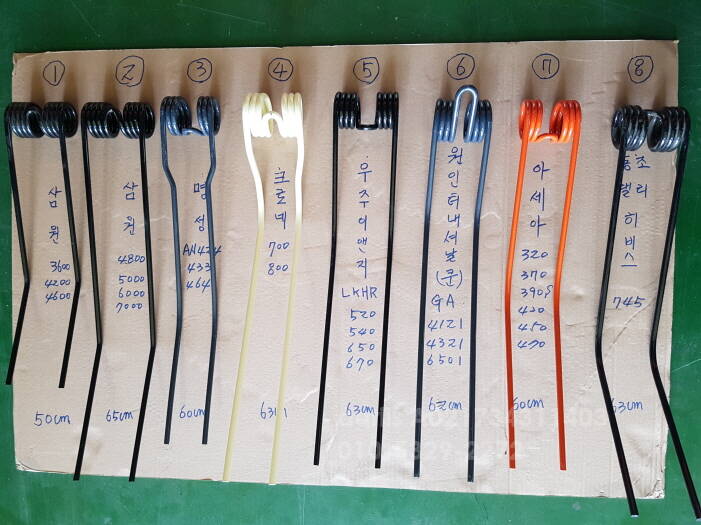 ①
삼원
3600
4200
4600
50cm
②
삼원
4800
5000
6000
7000
65cm
③
명성
AN424
433
464
60cm
④
크로넥
700
800
⑤
우주이앤지
LKHR
520
540
650
670
63cm
⑥
원인터내셔날(문)
GA
4121
4321
6501
⑦
아세아
320
370
450
470
60cm
⑧
동조
벨리히비스
745
63cm